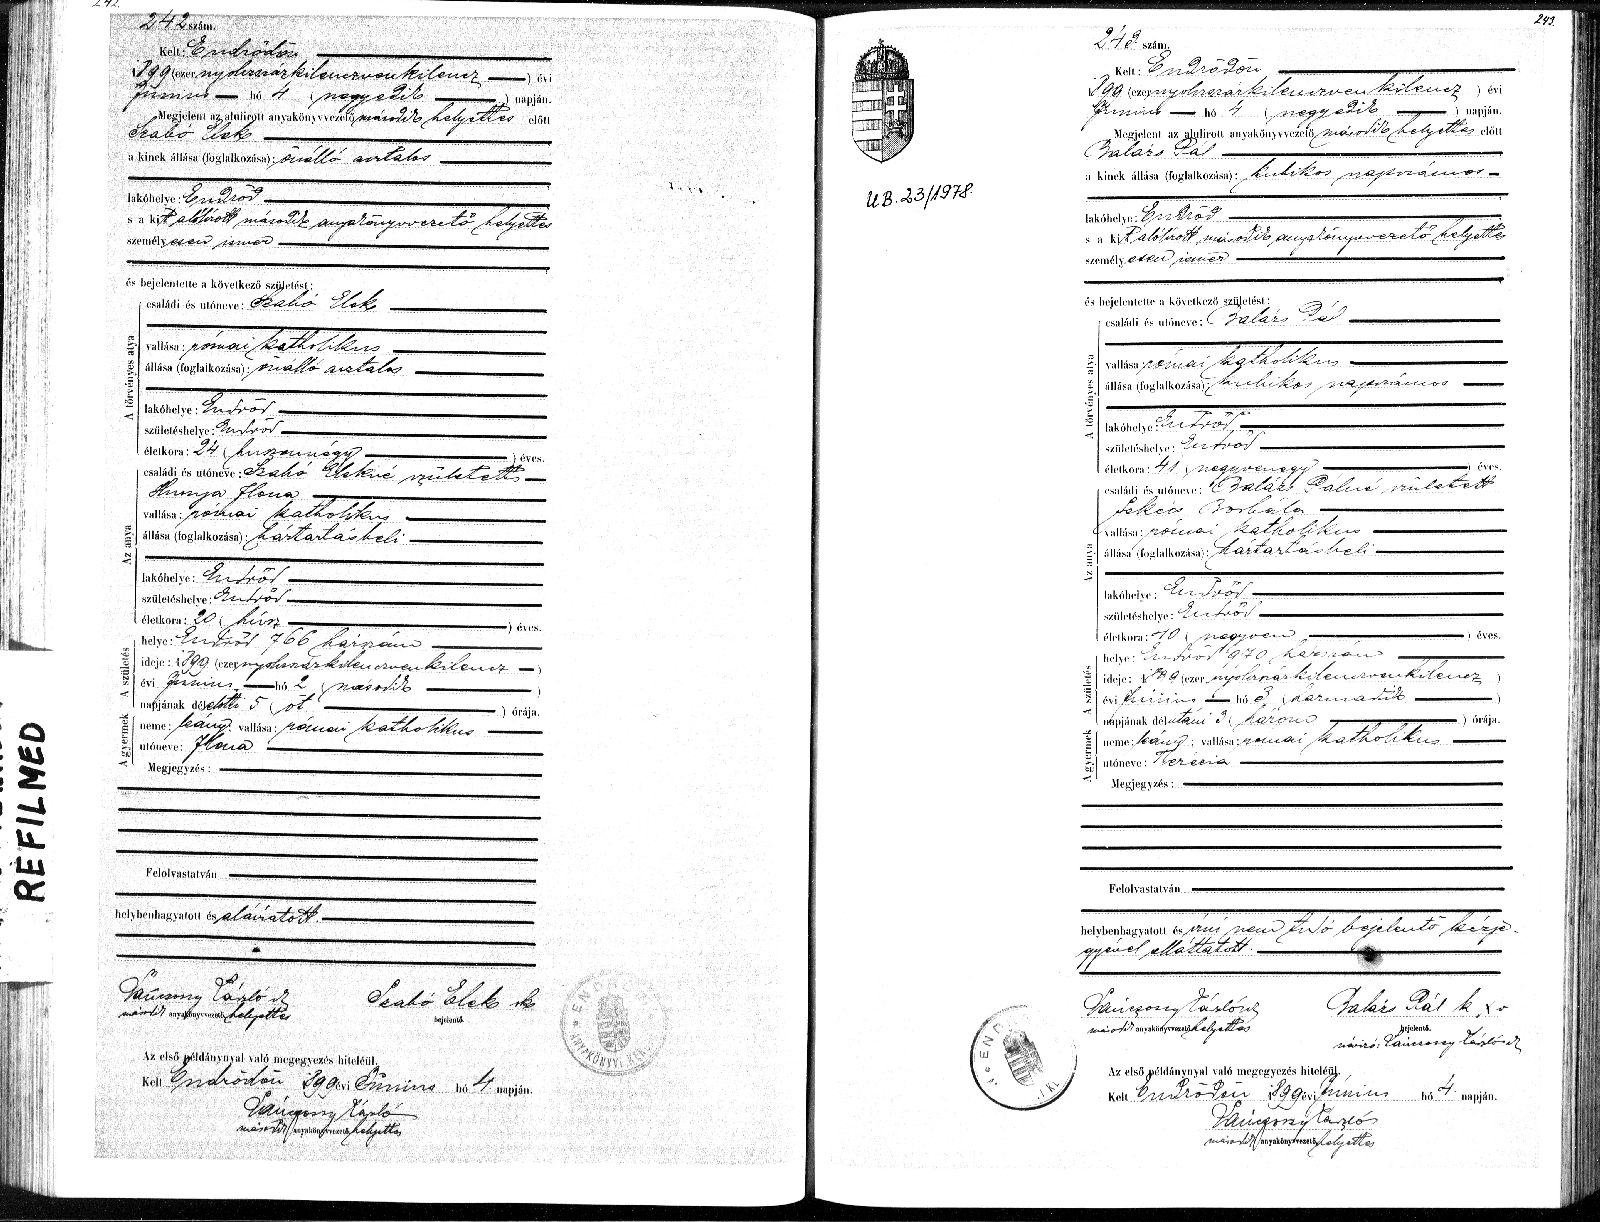 242.
242 szám.
Kelt: Endrődön
1899 (ezernyolcszázkilenczvenkilencz ) évi
Június hó 4 ( negyedik ) napján.
Megjelent az alulirott anyakönyvvezető második helyettes előtt
Szabó Elek
a kinek állása (foglalkozása): önálló asztalos
lakóhelye: Endrőd
s a kit alólírott második anyakönyvvezető helyettes
személyesen ismer
és bejelentette a következő születést:
A törvényes atya
családi és utóneve: Szabó Elek
vallása: római katholikus
állása (foglalkozása): önálló asztalos
lakóhelye: Endrőd
születéshelye: Endrőd
életkora: 24 ( huszonnégy ) éves.
Az anya
családi és utóneve: Szabó Elekné született
Hunya Ilona
vallása: római katholikus
állása (foglalkozása): háztartásbeli
lakóhelye: Endrőd
születéshelye: Endrőd
életkora: 20 ( húsz ) éves.
A születés
helye: Endrőd 766 házszám
ideje: 1899 (ezernyolcszázkilenczvenkilencz )
évi június hó 2 ( második )
napjának délelőtti 5 ( öt ) órája.
A gyermek
neme: leány; vallása: római katholikus
utóneve: Ilona
Megjegyzés:
Felolvastatván
helybenhagyatott és aláíratott.
Vánczony László
második anyakönyvvezető helyettes
Szabó Elek
bejelentő.
ENDRŐD
ANYAKÖNYVI KER.
Az első példánynyal való megegyezés hiteléül.
Kelt Endrődön 1899 évi Június hó 4 napján.
László
második anyakönyvvezető helyettes
REFILMED
243.
243 szám.
U.B. 23/1978
Kelt: Endrődön
1899 (ezernyolcszázkilenczvenkilencz ) évi
Június hó 4 ( negyedik ) napján.
Megjelent az alulirott anyakönyvvezető második helyettes előtt
Balázs Pál
a kinek állása (foglalkozása): kubikos napszámos
lakóhelye: Endrőd
s a kit alólírott második anyakönyvvezető helyettes
személyesen ismer
és bejelentette a következő születést:
A törvényes atya
családi és utóneve: Balázs Pál
vallása: római katholikus
állása (foglalkozása): kubikos napszámos
lakóhelye: Endrőd
születéshelye: Endrőd
életkora: 41 ( negyvenegy ) éves.
Az anya
családi és utóneve: Balázs Pálné született
Borbála
vallása: római katholikus
állása (foglalkozása): háztartásbeli
lakóhelye: Endrőd
születéshelye: Endrőd
életkora: 40 ( negyven ) éves.
A születés
helye: Endrőd 970 házszám
ideje: 1899 (ezernyolcszázkilenczvenkilencz )
évi június hó 3 ( harmadik )
napjának délutáni 3 ( három ) órája.
A gyermek
neme: leány; vallása: római katholikus
utóneve: Terézia
Megjegyzés:
Felolvastatván
helybenhagyatott és írni nem tudó bejelentő kézje-
gyével elláttatott.
László
második anyakönyvvezető helyettes
Balázs Pál k x v
bejelentő.
névíró: László
END
Az első példánynyal való megegyezés hiteléül.
Kelt Endrődön 1899 évi Június hó 4. napján.
László
második anyakönyvvezető helyettes